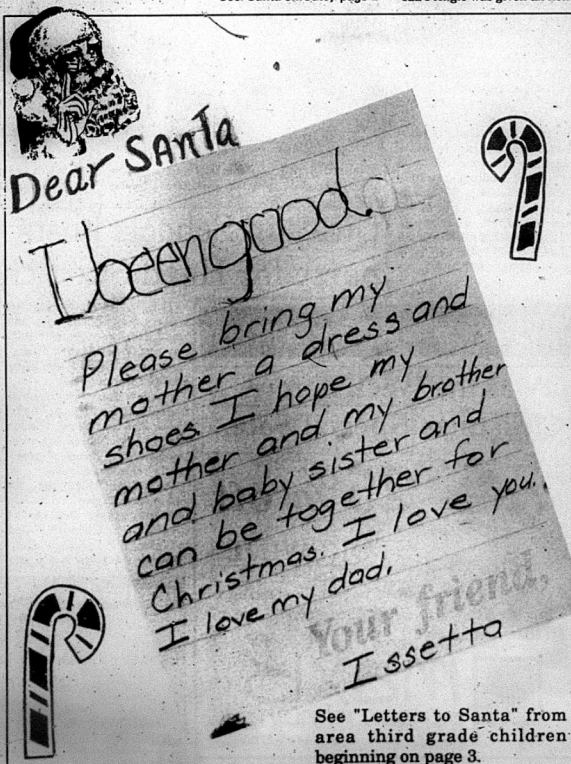 Dear Santa
I been good.
Please bring my
mother a dress and
shoes I hope my
mother and my brother
and baby sister and
can be together for
Christmas. I love you.
I love my dad.
Your friend,
Issetta
See "Letters to Santa" from
area third grade children
beginning on page 3.